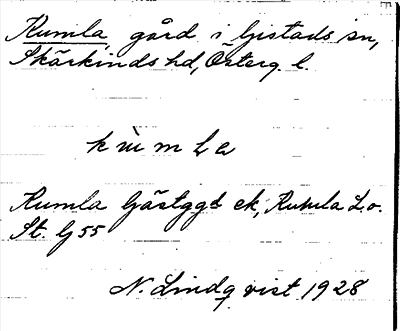 Kumla, gård i Gistads sn,
Skärkinds hd, Österg. l.
kùmla
Kumla Gästggd ek, Kumla L.o.
St. G 55
N. Lindqvist 1928